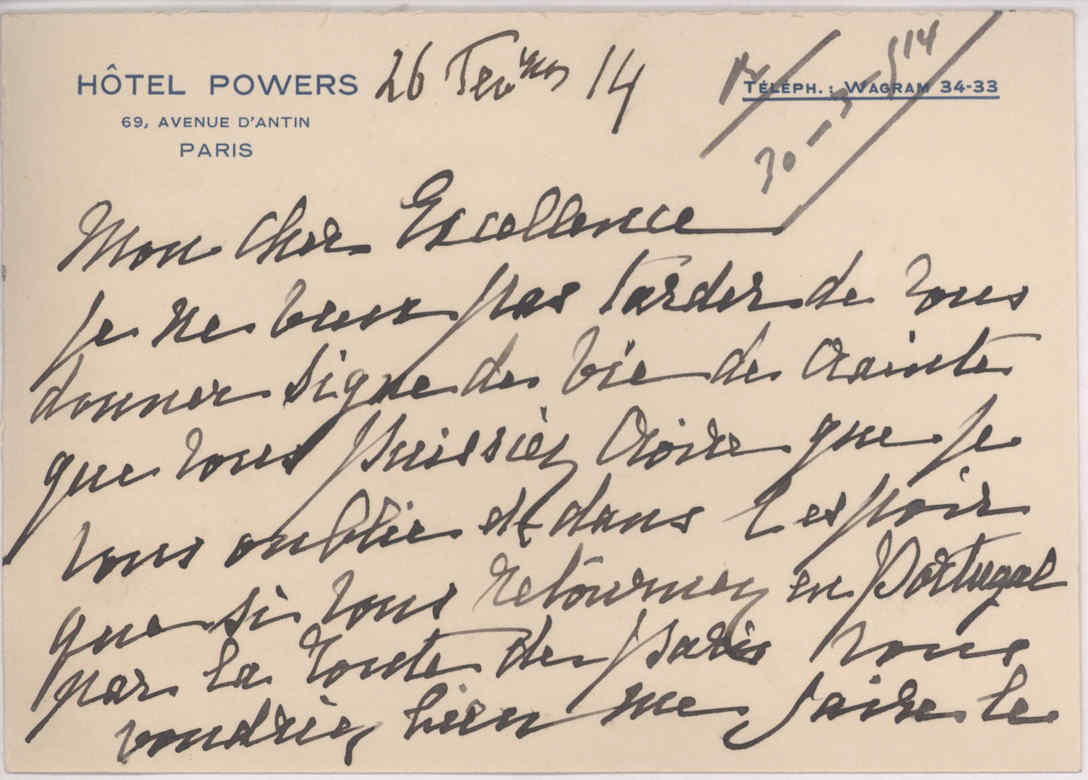 HÔTEL POWERS
69, AVENUE D'ANTIN
PARIS
26 Fevrier 14
TÉLÉPH. : WAGRAM 34-33
30-3-914
Mon cher Excellence
je ne veux pas tarder de vous
donner signe de vie de crainte
que vous puissiez croire que je
vous oublie et dans l espoir
que si vous retournez en Portugal
par la route de Paris vous
voudriez bien me faire le